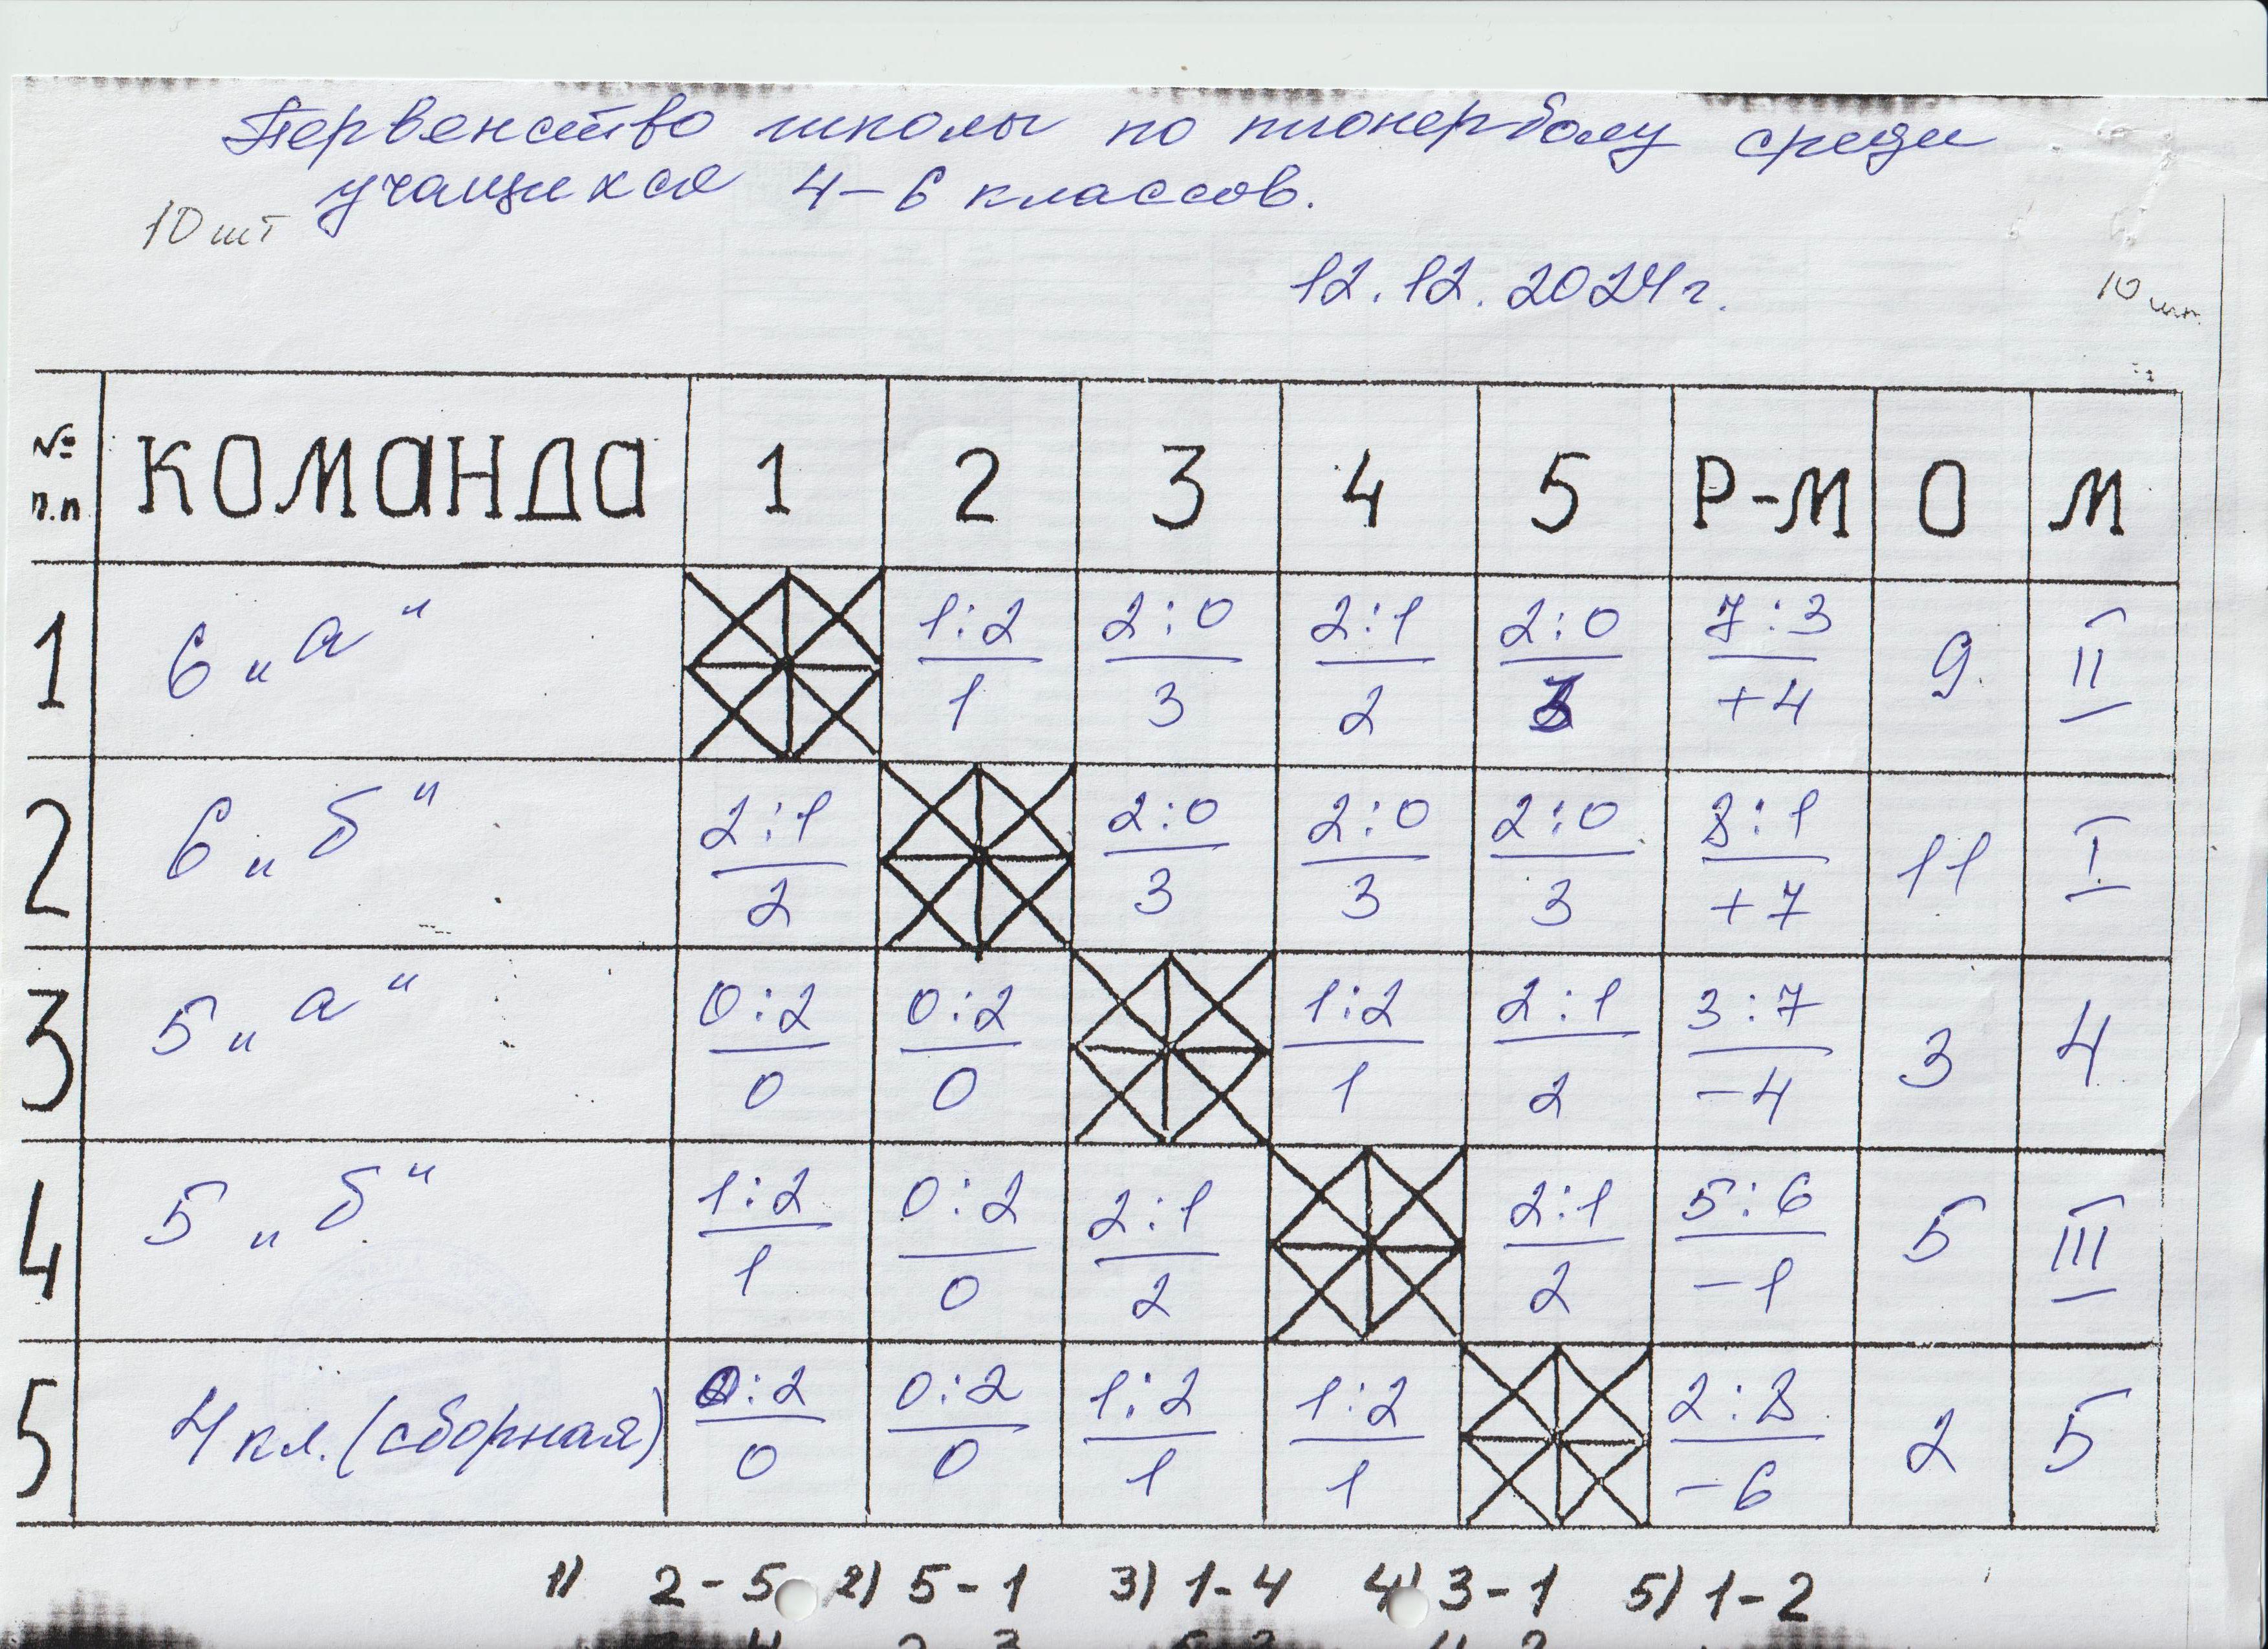 Первенство школы по пионерболу среди
учащихся 4-6 классов.
10 шт
12.12.2024г.
10 шт.
№ п.п КОМАНДА 1 2 3 4 5 Р-М О М
1 6 „а“ 1:2 2:0 2:1 2:0 7:3
1 3 2 3 +4 9 II
2 6 „б“ 2:1 2:0 2:0 2:0 8:1
2 3 3 3 +7 11 I
3 5 „а“ 0:2 0:2 1:2 2:1 3:7
0 0 1 2 -4 3 4
4 5 „б“ 1:2 0:2 2:1 2:1 5:6
1 0 2 2 -1 5 III
5 4 кл. (сборная) 0:2 0:2 1:2 1:2 2:8
0 0 1 1 -6 2 5
1) 2-5 2) 5-1 3) 1-4 4) 3-1 5) 1-2